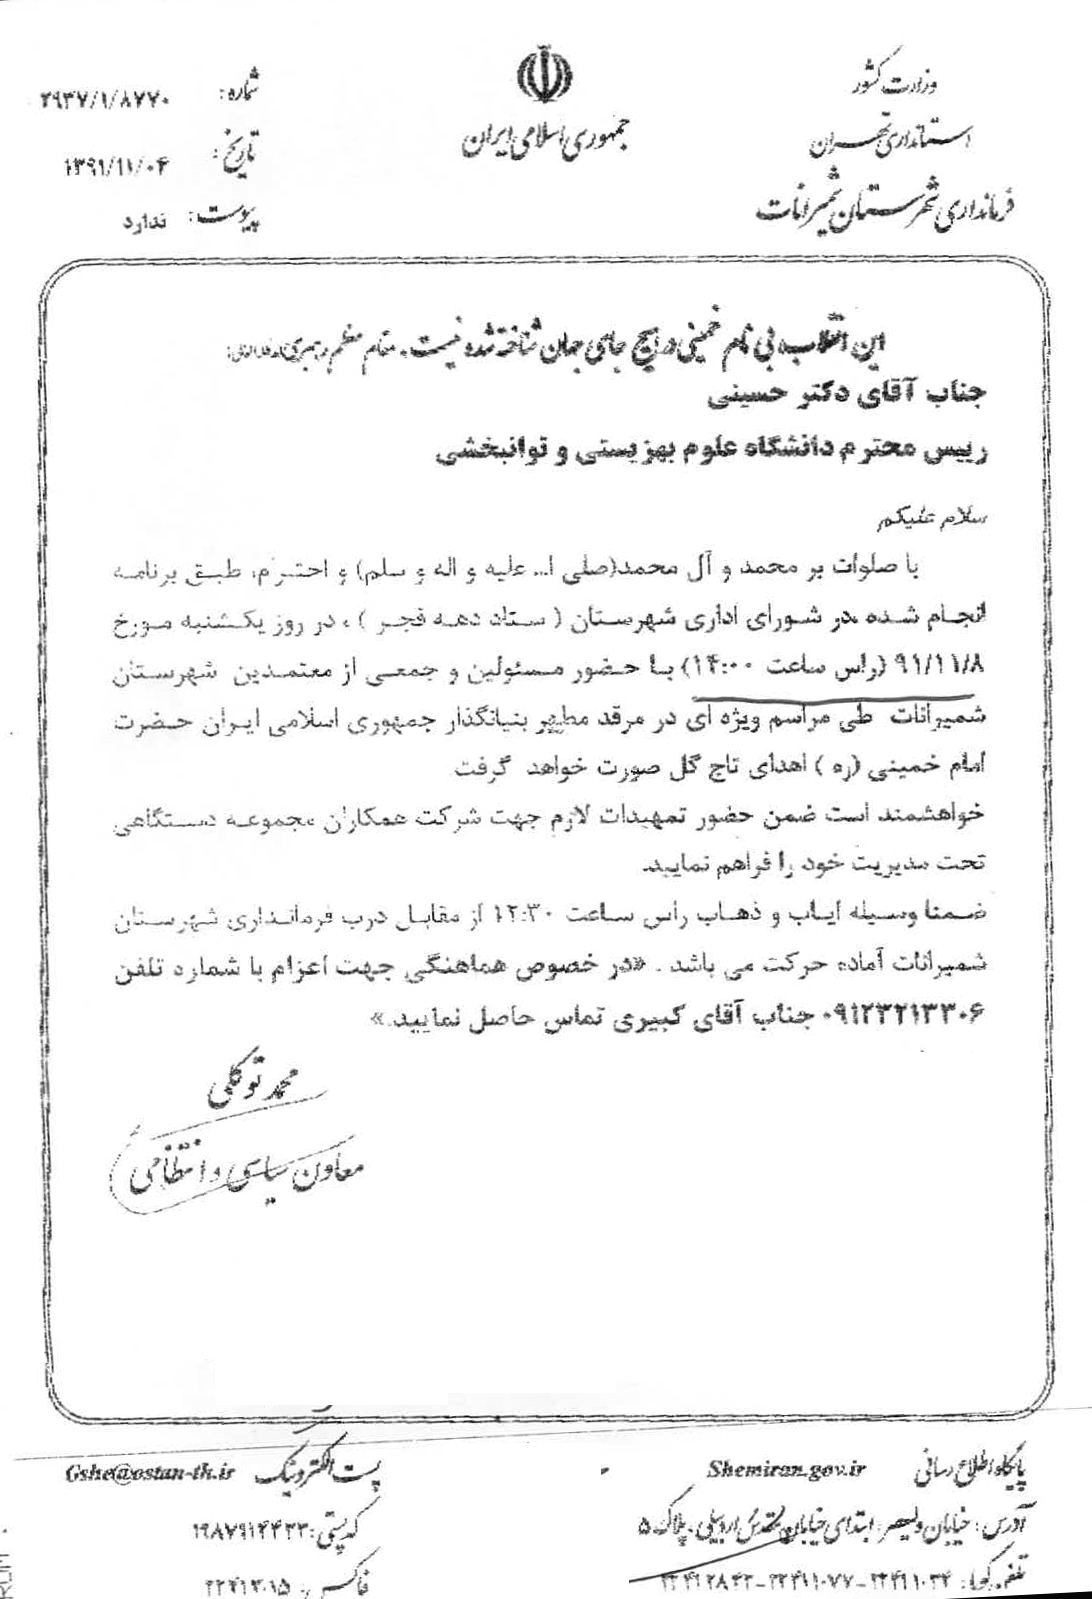 وزارت کشور
استانداری تهران
فرمانداری شهرستان شمیرانات
جمهوری اسلامی ایران
شماره: ۲۹۳۷/۱/۸۷۷۰
تاریخ: ۱۳۹۱/۱۱/۰۴
پیوست: ندارد
این انقلاب بی نام خمینی در هیچ جای جهان شناخته شده نیست. مقام معظم رهبری
جناب آقای دکتر حسینی
رییس محترم دانشگاه علوم بهزیستی و توانبخشی
سلام علیکم
با صلوات بر محمد و آل محمد(صلی ا... علیه و اله و سلم) و احترام، طبق برنامه
انجام شده در شورای اداری شهرستان ( ستاد دهه فجر ) ، در روز یکشنبه مورخ
۹۱/۱۱/۸ (راس ساعت ۱۴:۰۰) با حضور مسئولین و جمعی از معتمدین شهرستان
شمیرانات طی مراسم ویژه ای در مرقد مطهر بنیانگذار جمهوری اسلامی ایران حضرت
امام خمینی (ره ) اهدای تاج گل صورت خواهد گرفت
خواهشمند است ضمن حضور تمهیدات لازم جهت شرکت همکاران مجموعه دستگاهی
تحت مدیریت خود را فراهم نمایید.
ضمنا وسیله ایاب و ذهاب راس ساعت ۱۲:۳۰ از مقابل درب فرمانداری شهرستان
شمیرانات آماده حرکت می باشد . «در خصوص هماهنگی جهت اعزام با شماره تلفن
۰۹۱۲۳۲۱۳۳۰۶ جناب آقای کبیری تماس حاصل نمایید.»
محمد توکلی
معاون سیاسی و انتظامی
پایگاه اطلاع رسانی Shemiran.gov.ir
پست الکترونیک Gshe@ostan-th.ir
آدرس: خیابان ولیعصر، ابتدای خیابان مقدس اردبیلی، پلاک ۵
کدپستی: ۱۹۸۷۹۱۴۴۳۳
تلفن گویا: ۲۲۴۱۱۰۳۴-۲۲۴۱۱۰۷۷-۲۲۴۱۲۸۴۲
فاکس: ۲۲۴۱۳۰۱۵